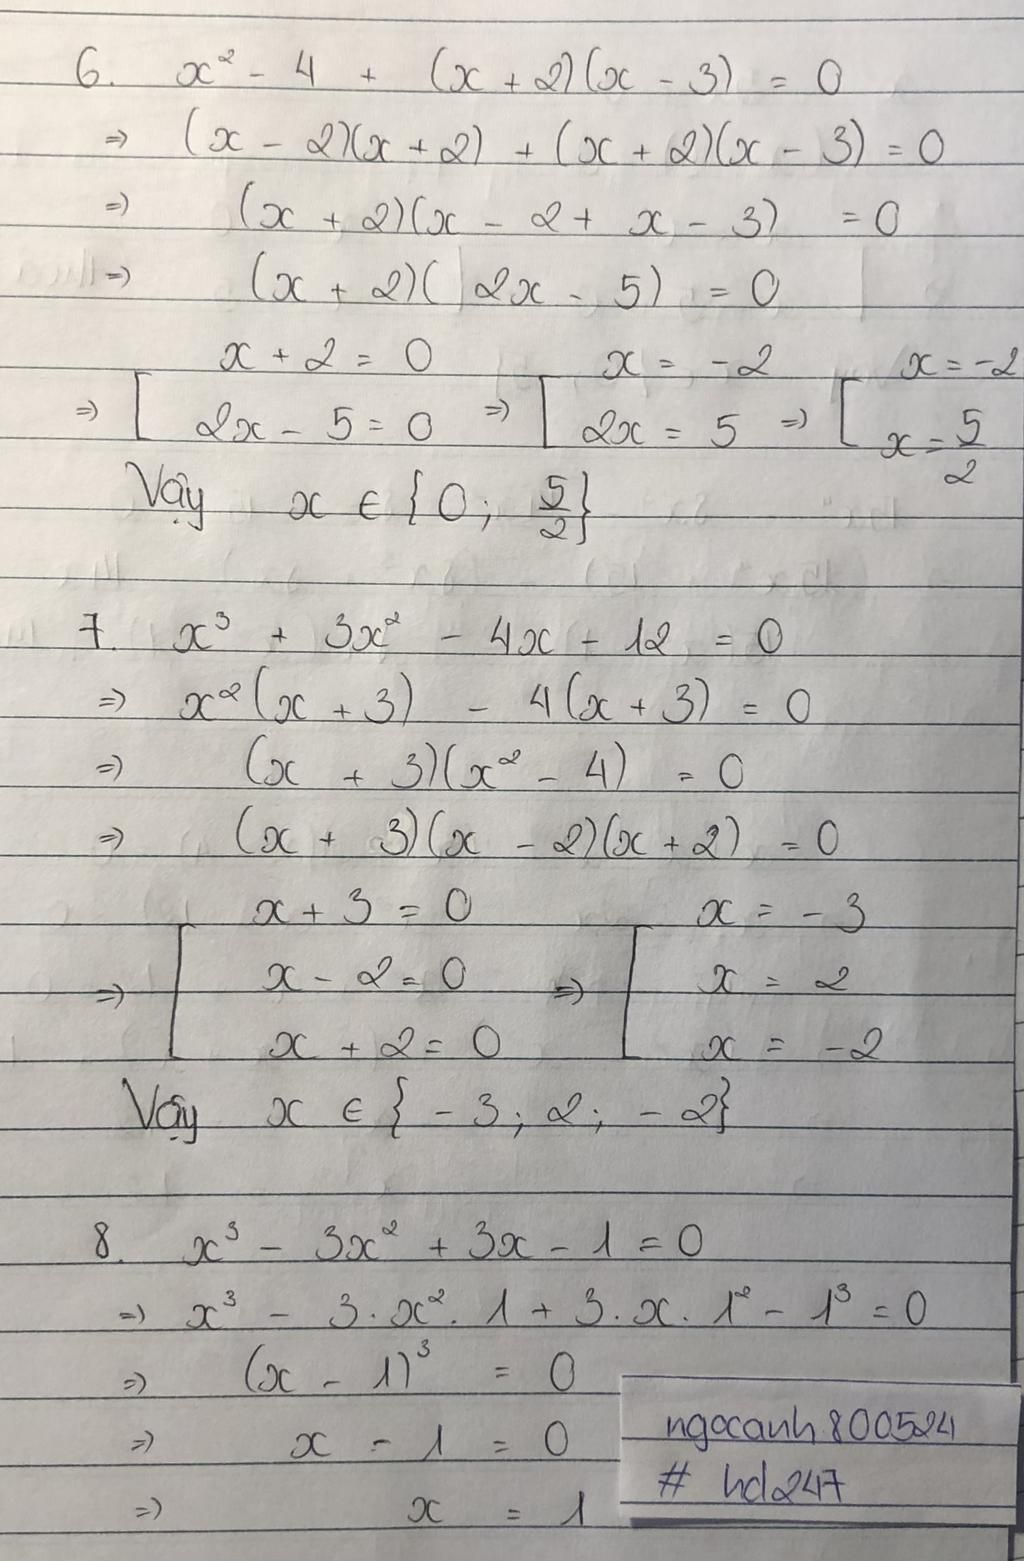 6. x² - 4 + (x + 2)(x - 3) = 0
⇒ (x - 2)(x + 2) + (x + 2)(x - 3) = 0
⇒ (x + 2)(x - 2 + x - 3) = 0
⇒ (x + 2)(2x - 5) = 0
x + 2 = 0 x = -2 x = -2
⇒ [ 2x - 5 = 0 ⇒ [ 2x = 5 ⇒ [ x = 5/2
Vậy x ∈ {0; 5/2}
7. x³ + 3x² - 4x + 12 = 0
⇒ x²(x + 3) - 4(x + 3) = 0
⇒ (x + 3)(x² - 4) = 0
⇒ (x + 3)(x - 2)(x + 2) = 0
x + 3 = 0 x = -3
⇒ [ x - 2 = 0 ⇒ [ x = 2
x + 2 = 0 x = -2
Vậy x ∈ {-3; 2; -2}
8. x³ - 3x² + 3x - 1 = 0
⇒ x³ - 3.x².1 + 3.x.1² - 1³ = 0
⇒ (x - 1)³ = 0
⇒ x - 1 = 0
⇒ x = 1
ngocanh800524
# hd247